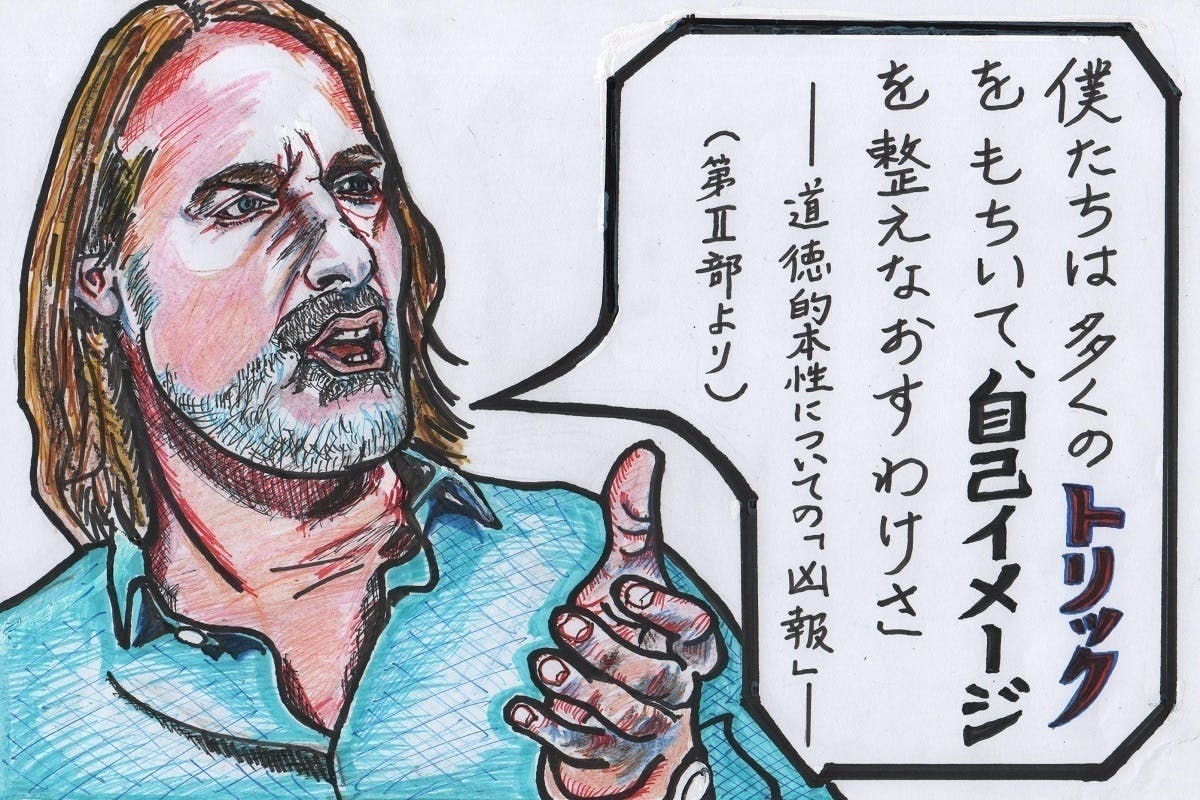 僕たちは多くのトリック
をもちいて、自己イメージ
を整えなおすわけさ」
――道徳的本性についての「凶報」――
（第Ⅱ部より）